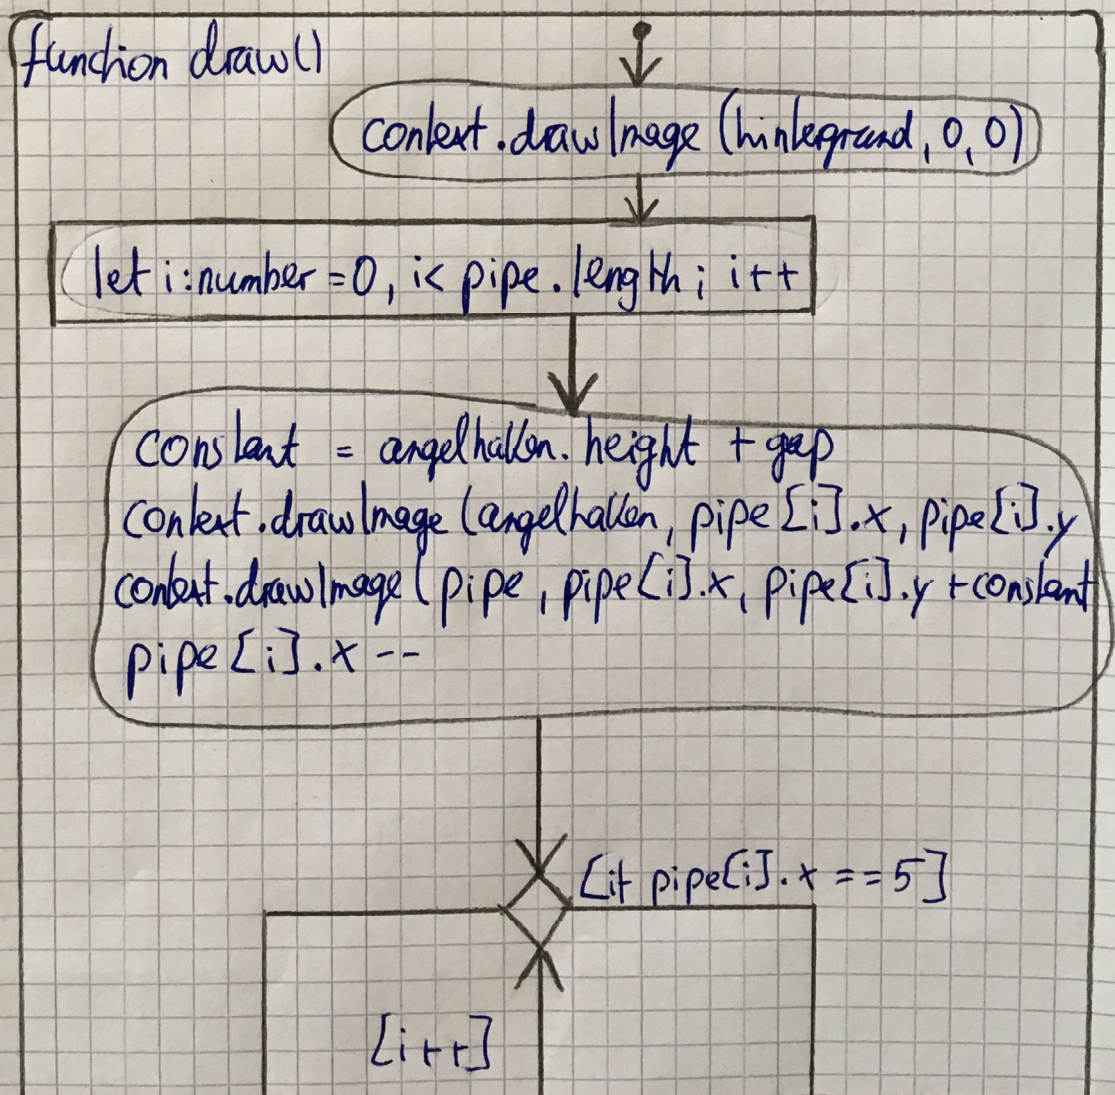 function draw()
context.drawImage (hintergrund, 0,0)
let i:number =0, i< pipe.length; i++
constant = angelhaken.height + gap
context.drawImage (angelhaken, pipe[i].x, pipe[i].y
context.drawImage (pipe, pipe[i].x, pipe[i].y +constant
pipe[i].x --
[if pipe[i].x ==5]
[i++]